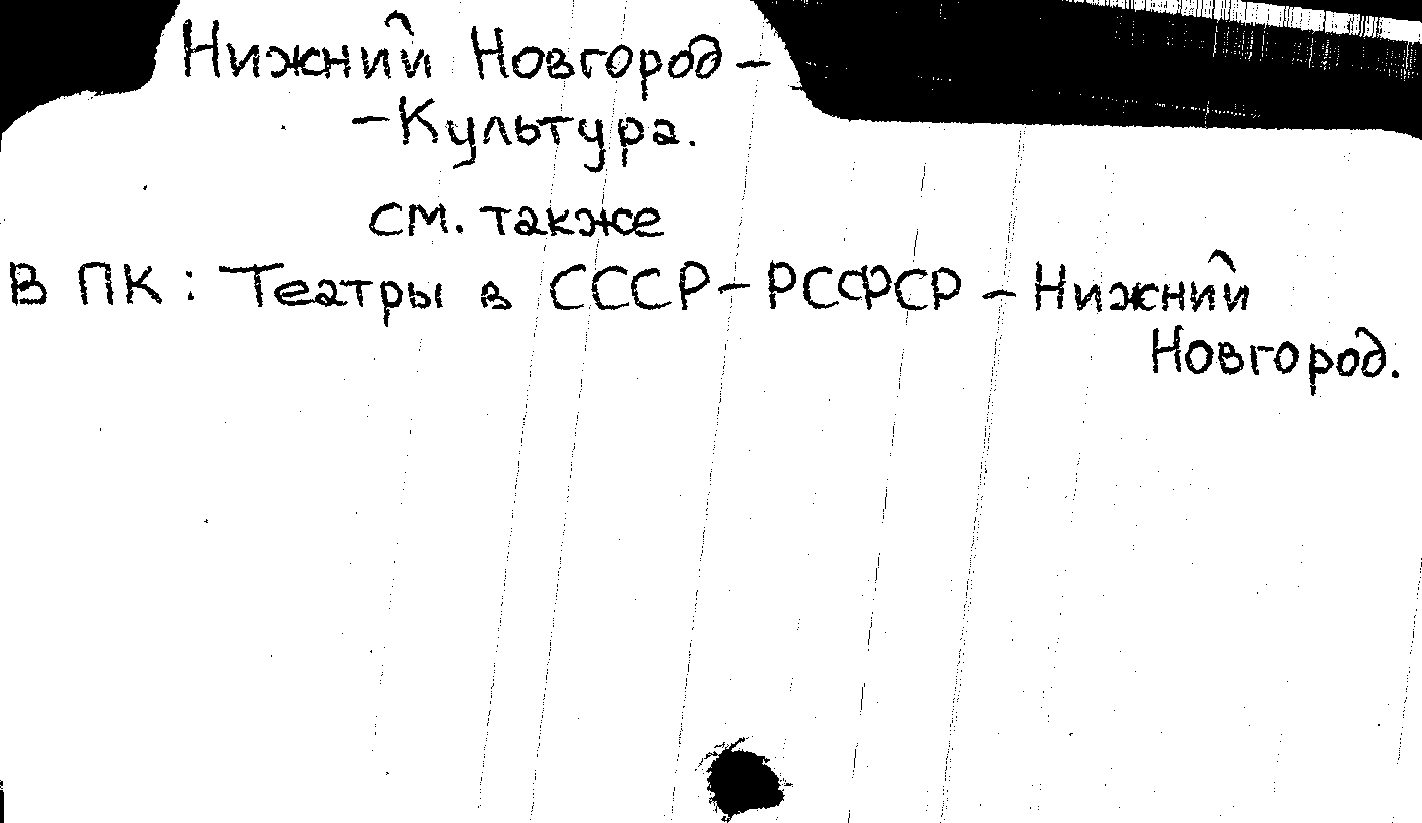 Нижний Новгород –
– Культура.
см. также
В ПК: Театры в СССР – РСФСР – Нижний
Новгород.